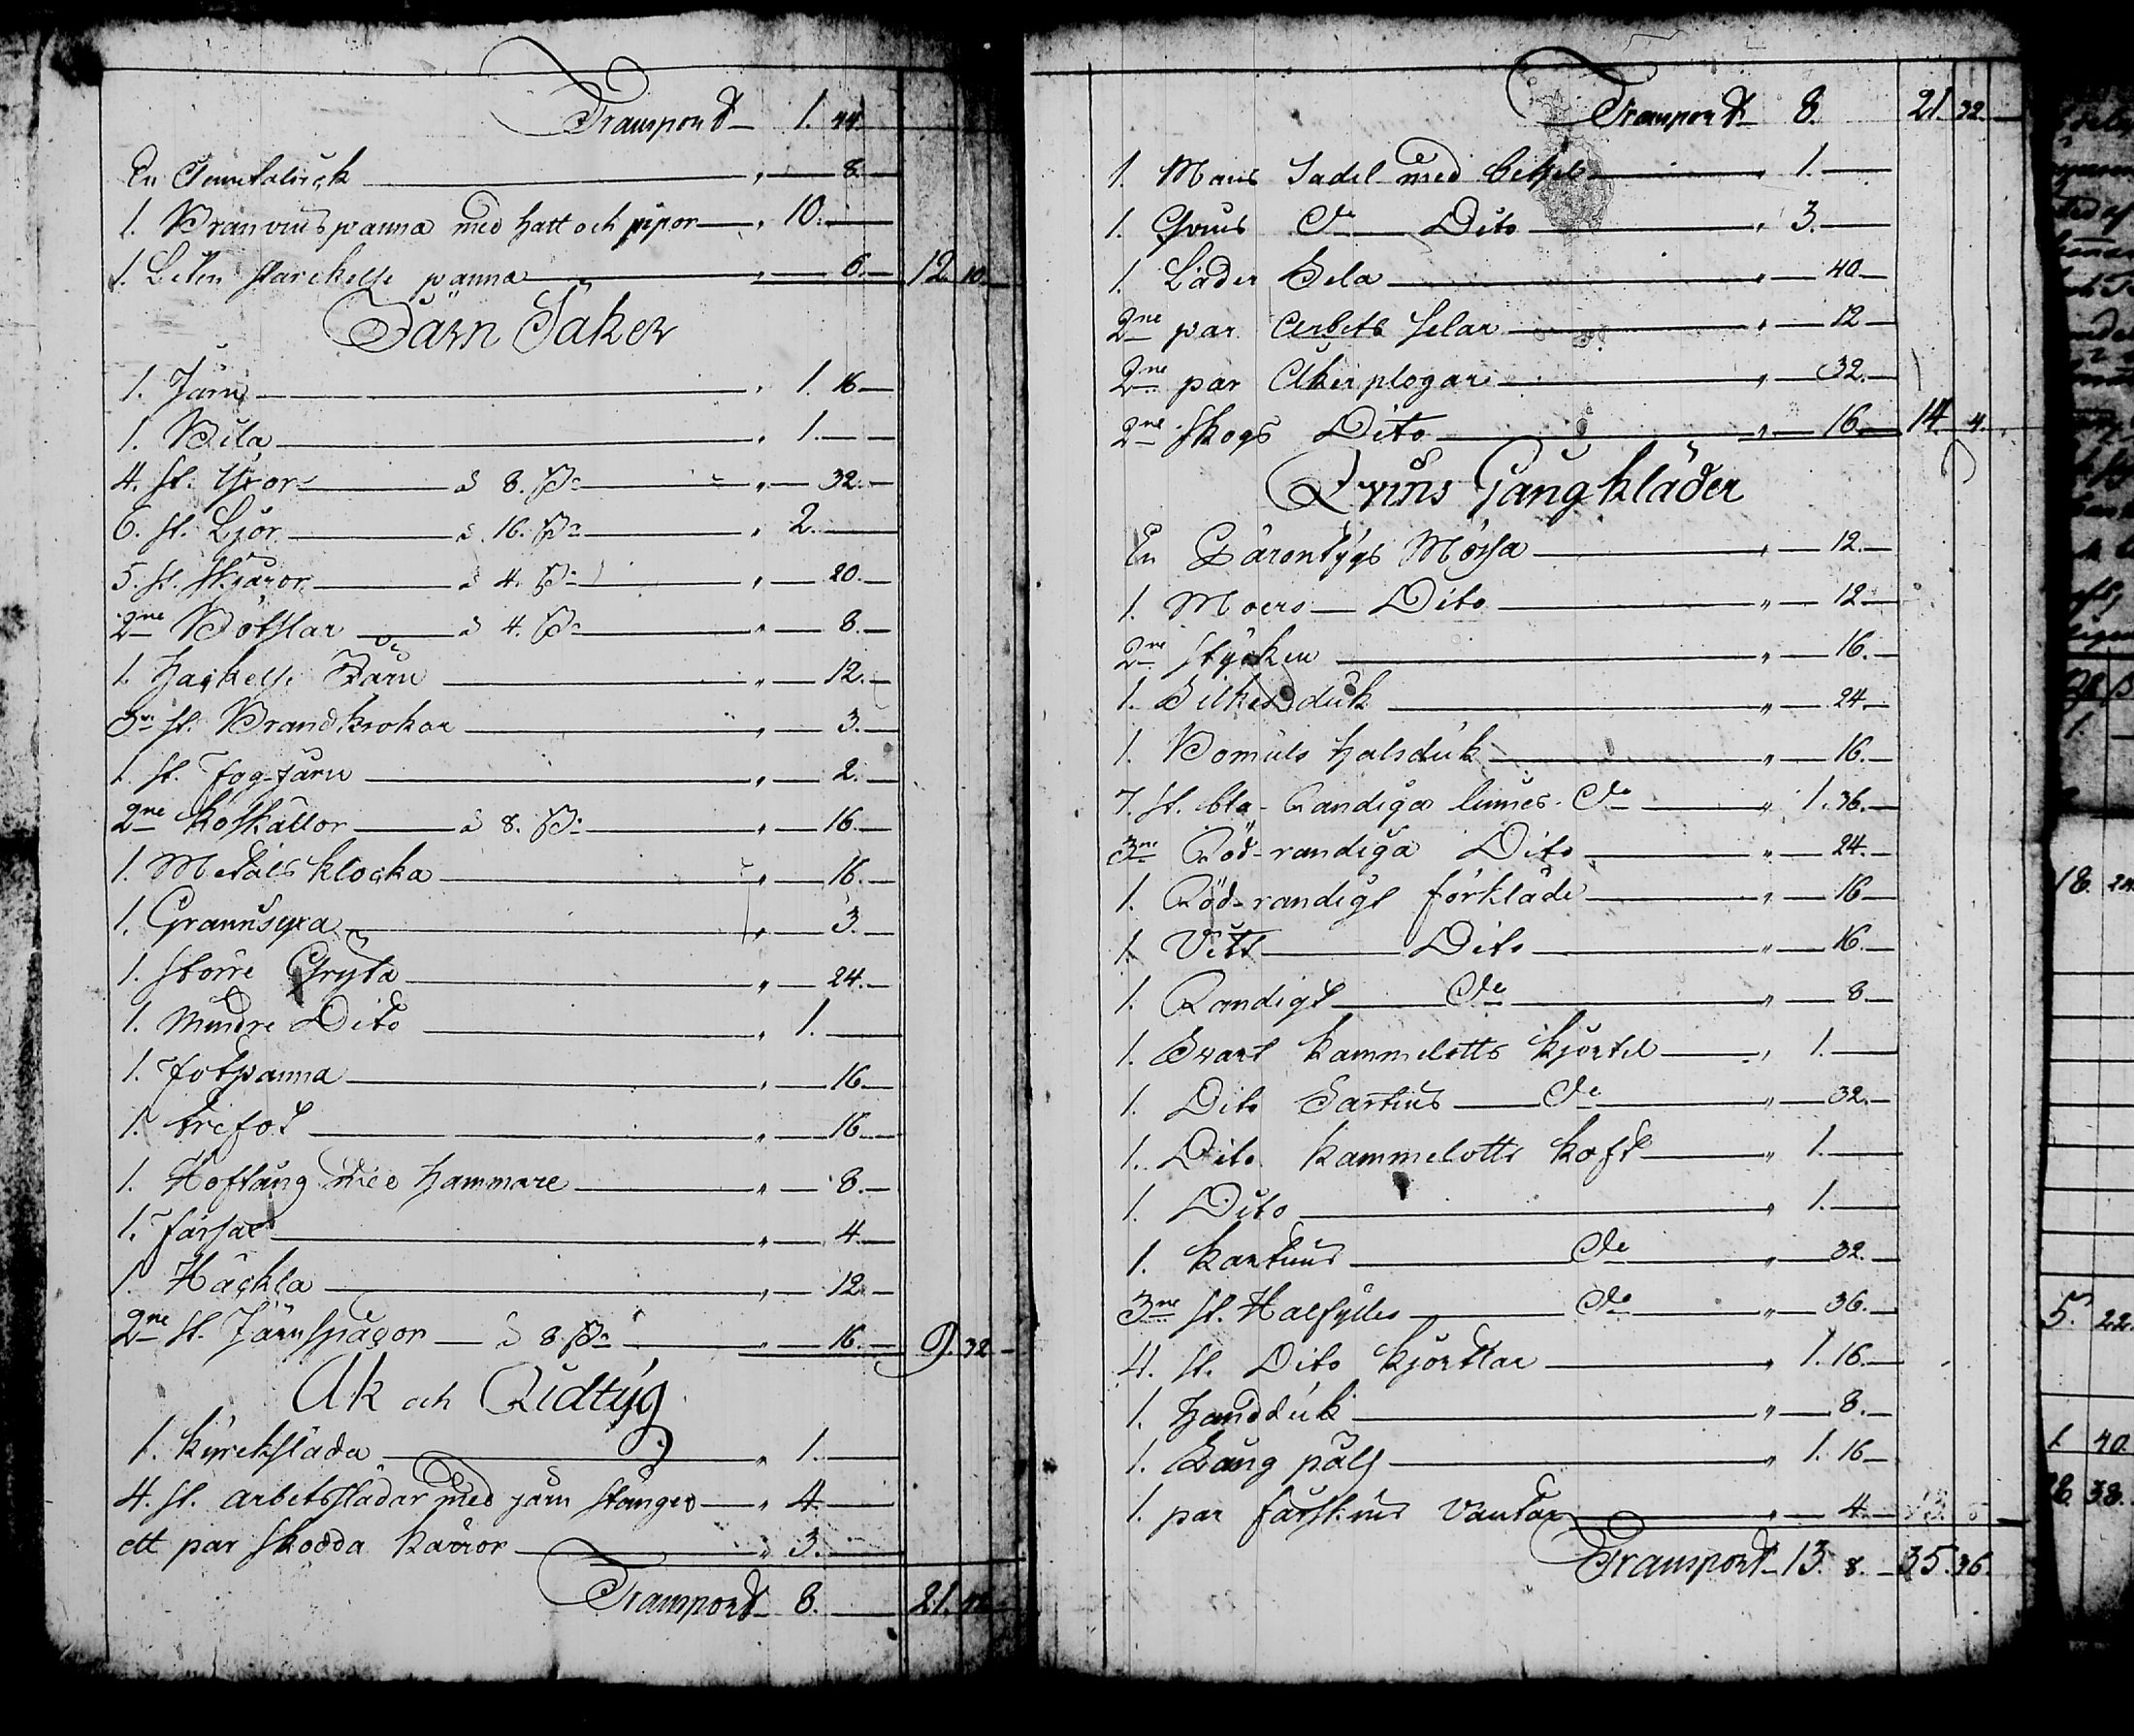 Transport 1. 44.
En 8.
1. Branvins panna med hatt och pipor 10.
1. Liten starckelse panna 6. 12. 10.
Järn Saker
1. Järn 1. 16
1. Bila 1.
4. st. Yxor à 8. ß 32.
6. st. Ljör à 16. ß 2.
5. st. Skjäror à 4. ß 20.
2ne Bötslar à 4. ß 8.
1. Hackelse Järn 12.
3ne st. Brandkrokar 3.
1 st. Fog-Järn 2.
2ne Koskällor à 8. ß 16.
1. Metals klocka 16.
1. 3.
1. större Gryta 24.
1. Mindre Dito 1.
1. Fotpanna 16.
1. trefot 16.
1. Hoftång med Hammare 8.
1. 4.
1. Häckla 12.
2ne st. Järn à 8. ß 16. 9. 32
Åk och Ridtÿg
1. Kyrckslada 1.
4. st. arbetssladar med järn stänger 4.
ett par skodda kärror 3.
Transport 8. 21. 42
Transport 8. 21. 32.
1. Mans Sadel med betsel 1.
1. Qvins do Dito 3.
1. Läder Sela 40
2ne par Arbets selar 12
2ne par Åker plogar 32.
2ne Skogs Dito 16. 14. 4.
Qvins Gång kläder
En tÿgs Mössa 12.
1. Moers Dito 12
2ne stÿcken 16.
1. Silkesduk 24
1. Bomuls halsduk 16.
7. st. bla-Randiga linnes do 1. 36.
3ne Röd-randiga Dito 24.
1. Röd-randigt förkläde 16
1. Vitt Dito 16.
1. Randigt do 8
1. Svart kammelotts kjortel 1.
1. Dito do 32.
1. Dito Kammelotts koft 1.
1. Dito 1.
1. Kartuns do 32.
3ne st. Halfylles do 36.
4. st. Dito kjortlar 1. 16.
1. Handduk 8.
1. pals 1. 16
1. par fårskins Vantar 4.
Transport 13. 8. 35. 36.
1.
18. 24.
5. 22.
1. 40.
38.